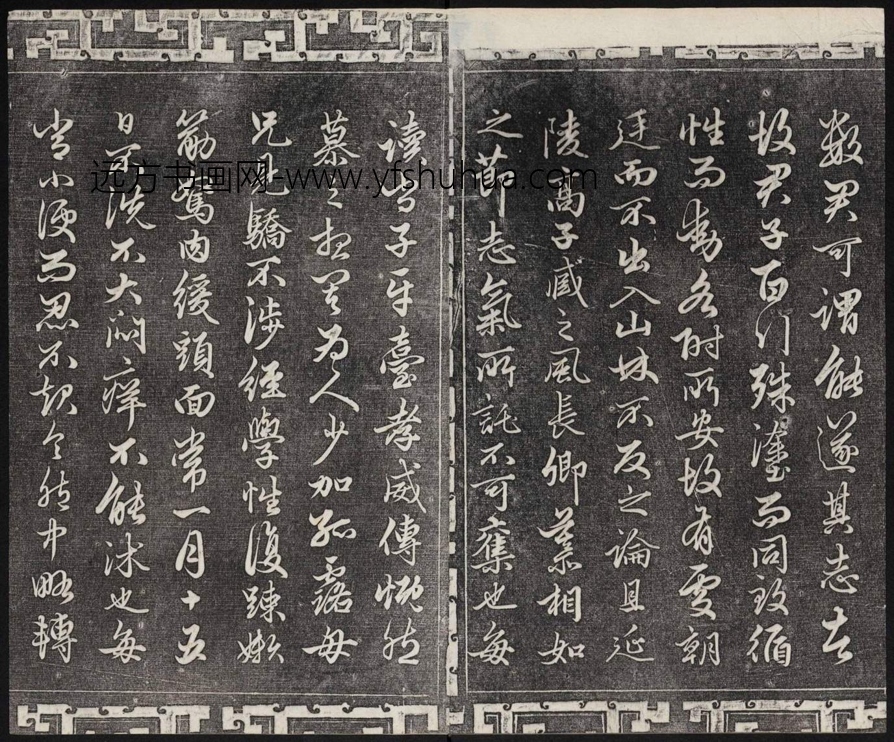 數君可謂能遂其志者
故君子百行殊塗而同致循
性而動各附所安故有處朝
廷而不出入山林不反之論且延
陵高子臧之風長卿慕相如
之節志氣所託不可奪也每
讀尚子平臺孝威傳慨然
慕之想其為人少加孤露母
兄見驕不涉經學性復疎嬾
筋駑肉緩頭面常一月十五
日不洗不大悶癢不能沐也每
常小便而忍不起令胞中略轉
远方书画网-www.yfshuhua.com